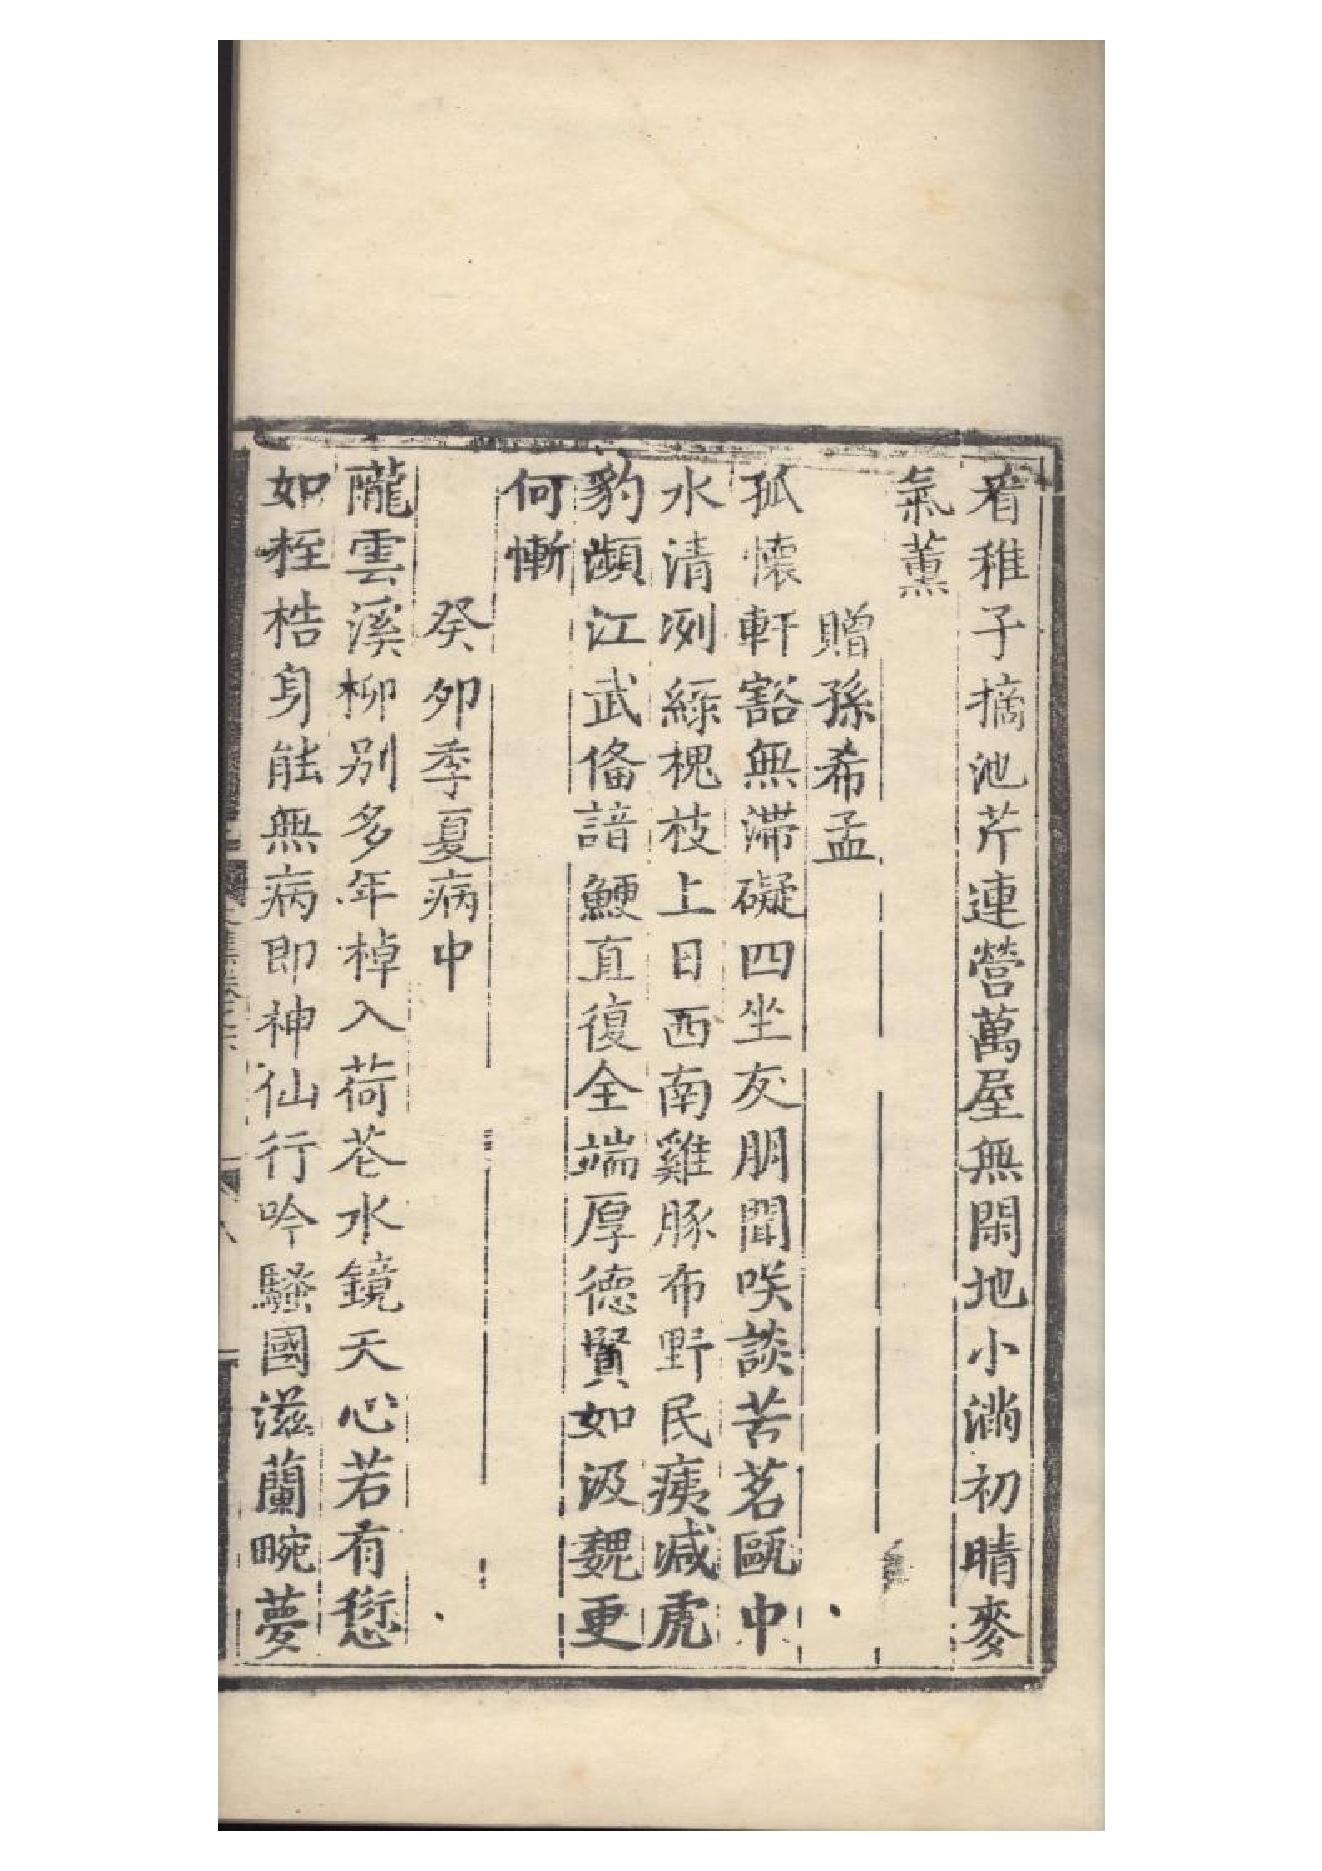 看稚子摘池芹連營萬屋無閑地小滿初晴麥
氣薰
贈孫希孟
孤懷軒豁無滯礙四坐友朋聞咲談苦茗甌中
水清冽綠槐枝上日西南雞豚布野民痍減虎
豹瀕江武俻諳鯁直復全端厚德賢如汲魏更
何慚
癸夘季夏病中
隴雲溪柳别多年棹入荷花水鏡天心若有愆
如桎梏身能無病即神仙行吟騷國滋蘭畹夢